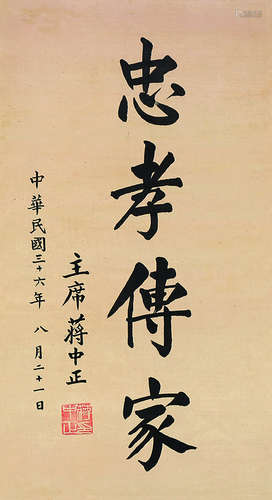 忠孝傳家
主席蔣中正
中華民國三十六年 八月二十一日